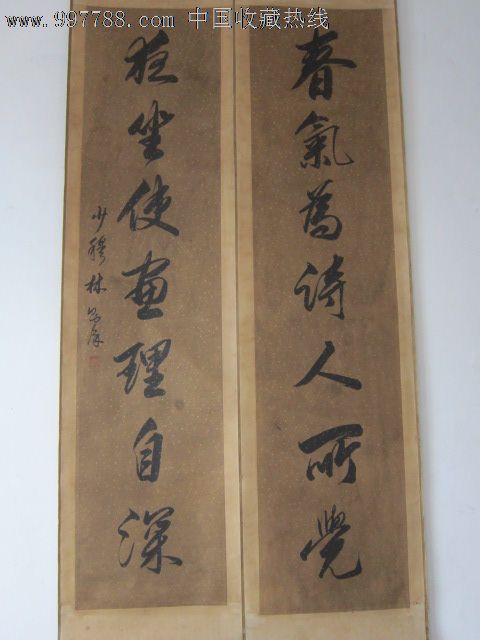 www.997788.com 中国收藏热线
春氣爲詩人所覺
夜坐使畫理自深
少穆林則徐